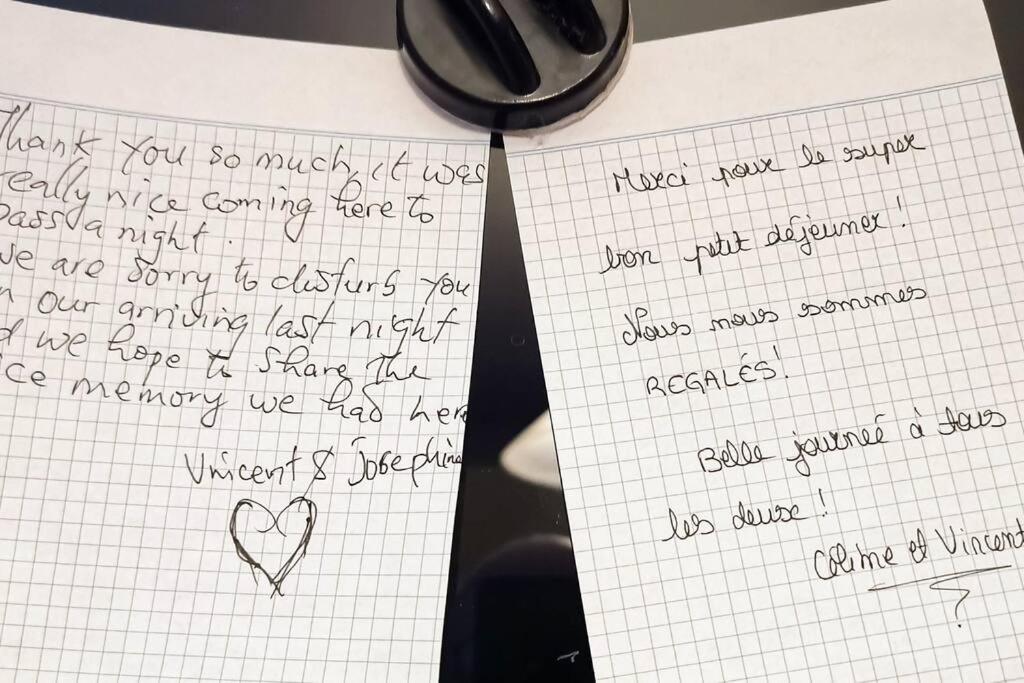 Thank you so much, it was
really nice coming here to
pass a night.
we are sorry to disturb you
n our arriving last night
d we hope to share the
ice memory we had here
Vincent & Josephine
Merci pour le super
bon petit déjeuner !
Nous nous sommes
REGALÉS !
Belle journeé à tous
les deux !
Coline et Vincent